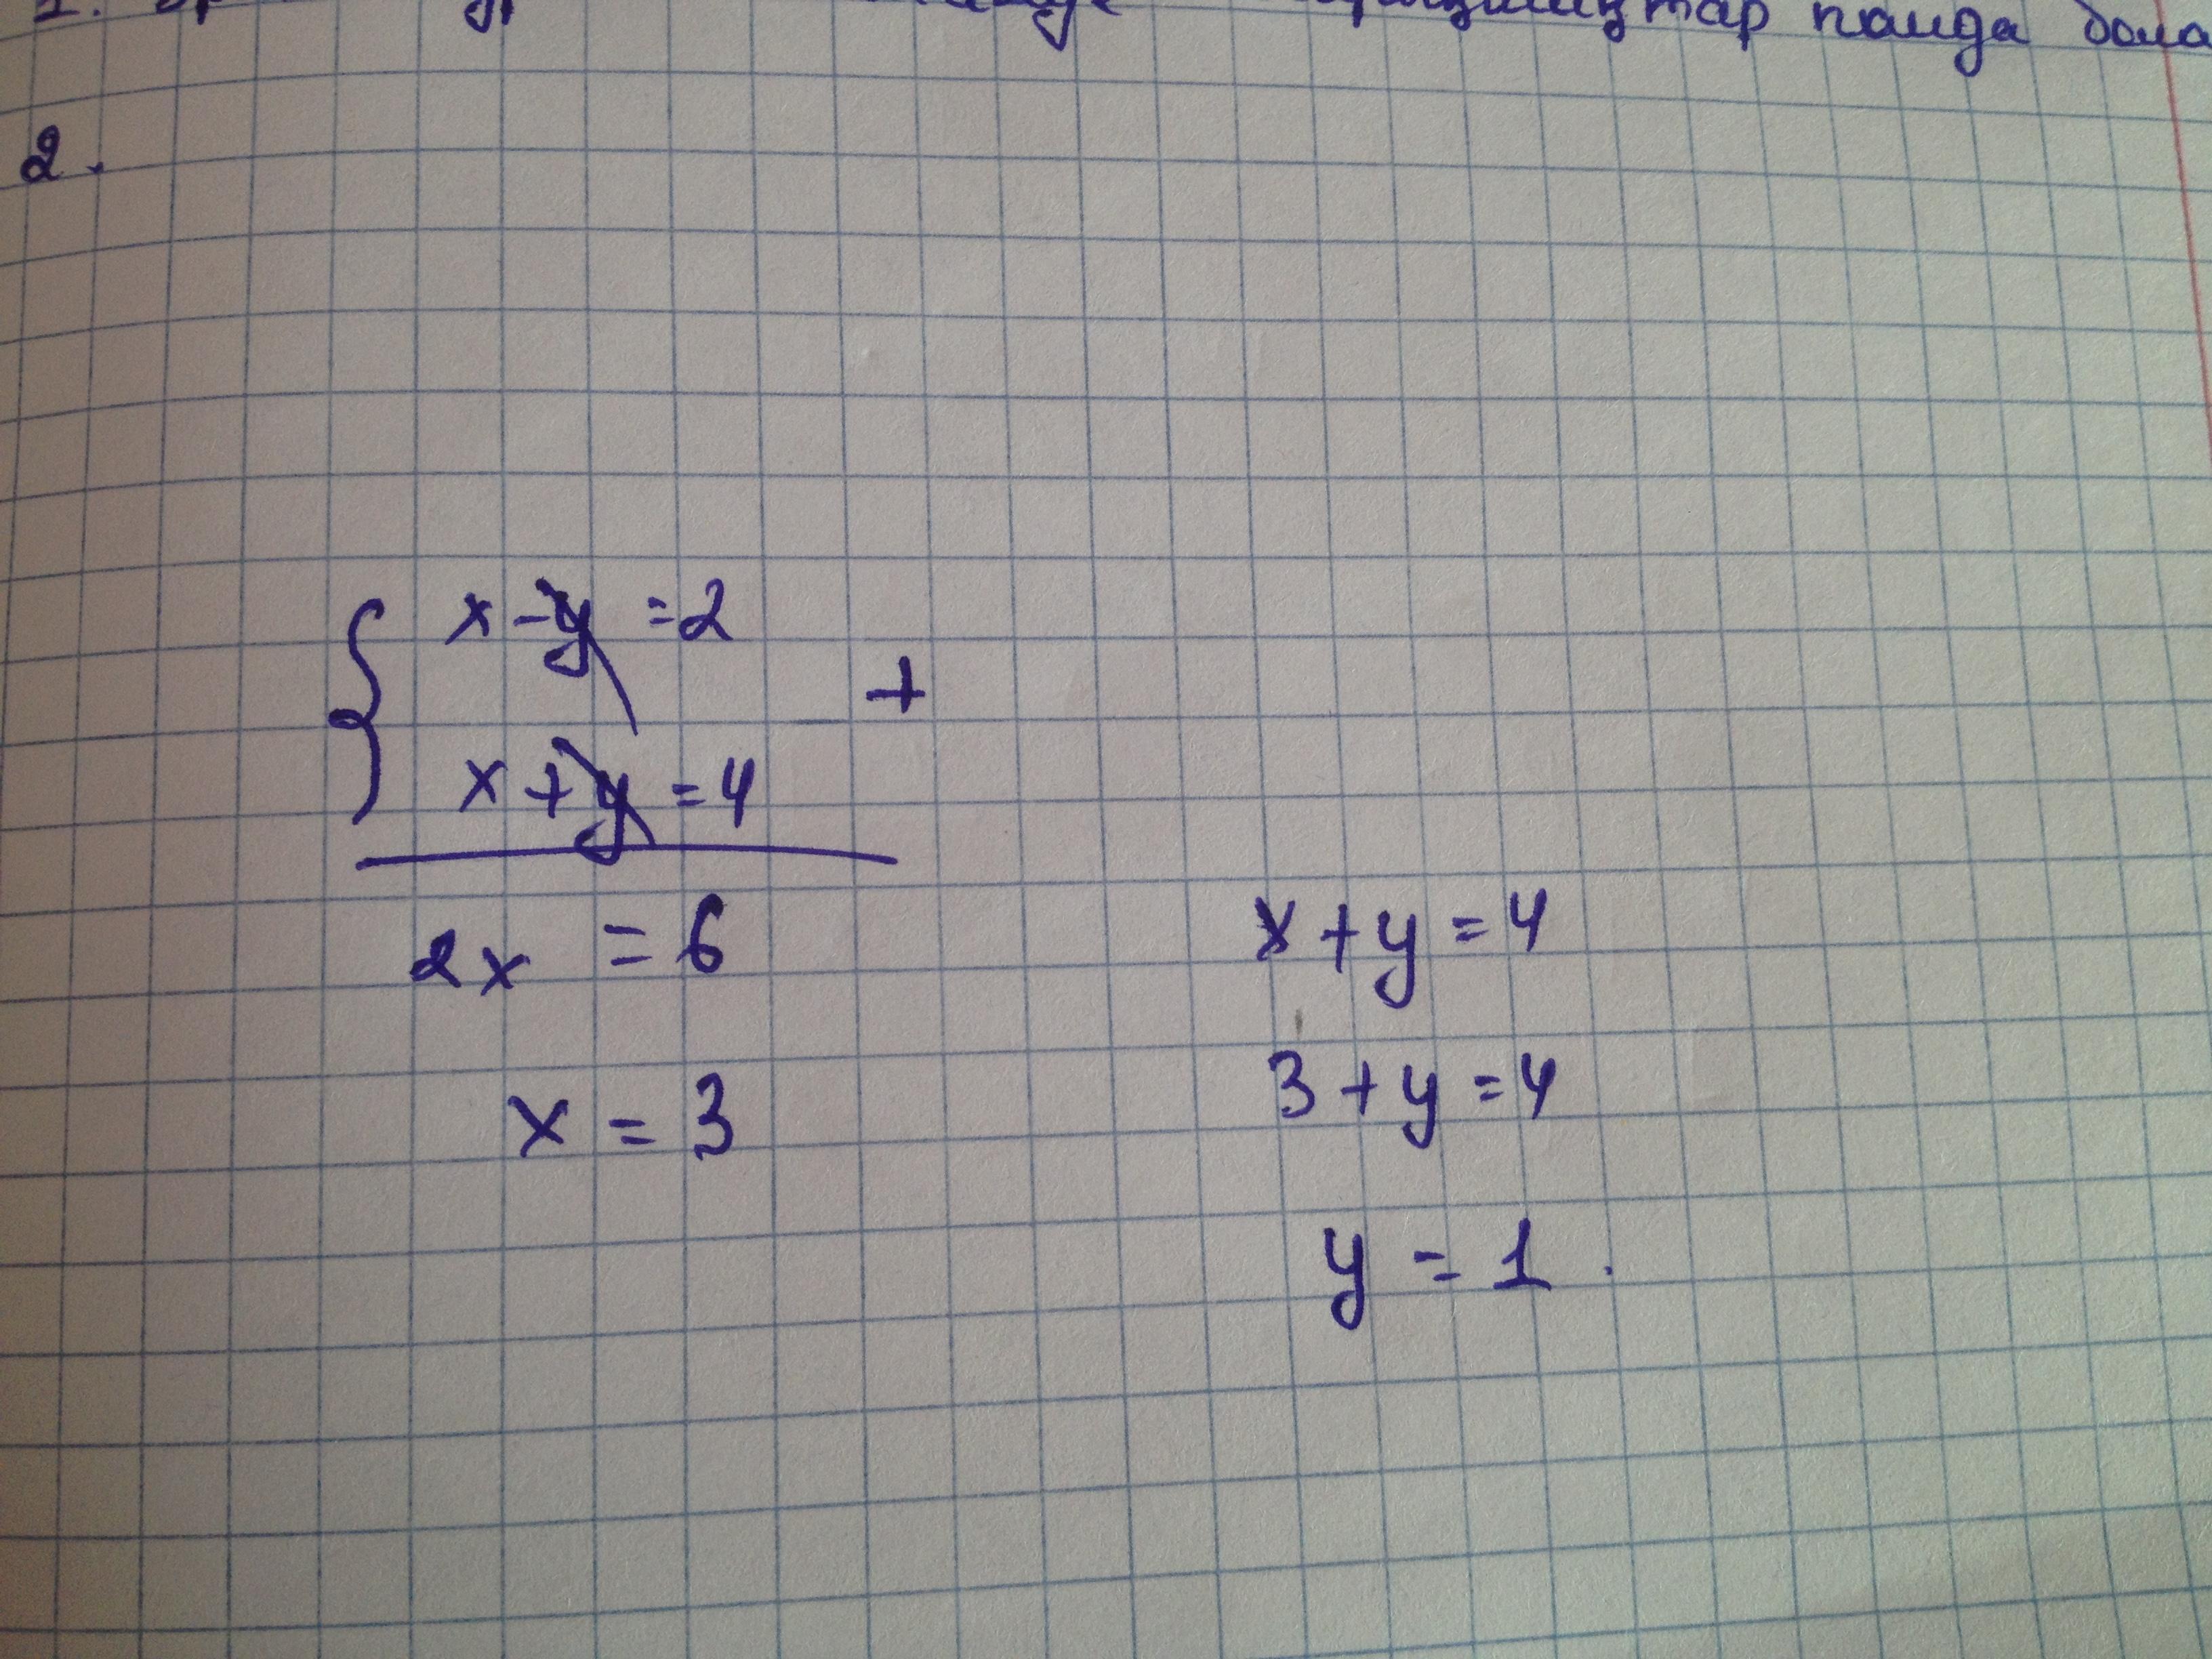 1.
тар пайда бола
2.
{ x - y = 2
+
x + y = 4
2x = 6
x = 3
x + y = 4
3 + y = 4
y = 1.